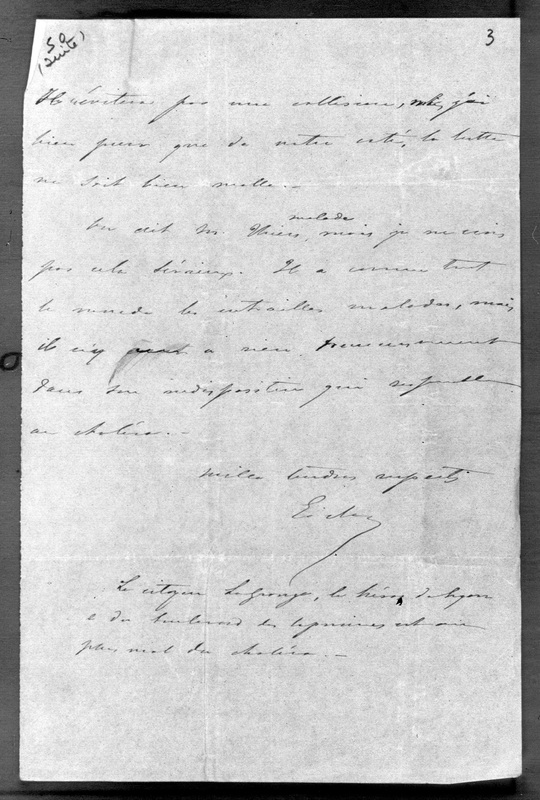 50
(suite)
3
N'évitera pas une collision, mais j'ai
bien peur que de notre côté, la lutte
ne soit bien molle. –
On dit M. Thiers malade, mais je ne crois
pas cela sérieux. Il a comme tout
le monde les entrailles malades, mais
il n'y a rien heureusement
dans son indisposition qui ressemble
au choléra. –
mille tendres respects
Le citoyen Lagrange, le héros de Lyon
& du boulevard des Capucines est au
plus mal du choléra. –